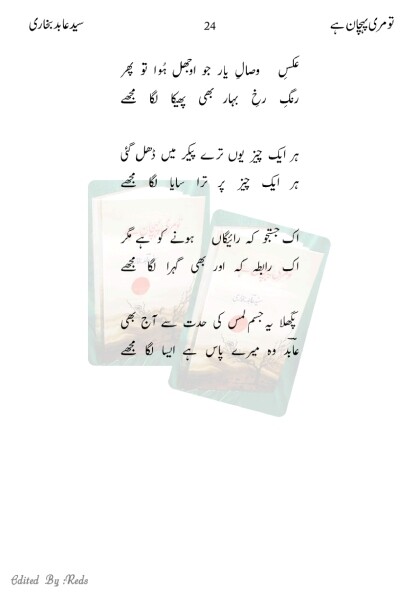 تو مری پہچان ہے 24 سید عابد بخاری
عکسِ وصالِ یار جو اوجھل ہُوا تو پھر
رنگِ رخِ بہار بھی پھیکا لگا مجھے
ہر ایک چیز یوں ترے پیکر میں ڈھل گئی
ہر ایک چیز پر ترا سایا لگا مجھے
اک جستجو کہ رائیگاں ہونے کو ہے مگر
اک رابطہ کہ اور بھی گہرا لگا مجھے
پگھلا یہ جسم لمس کی حدت سے آج بھی
عابدؔ وہ میرے پاس ہے ایسا لگا مجھے
Edited By Reds